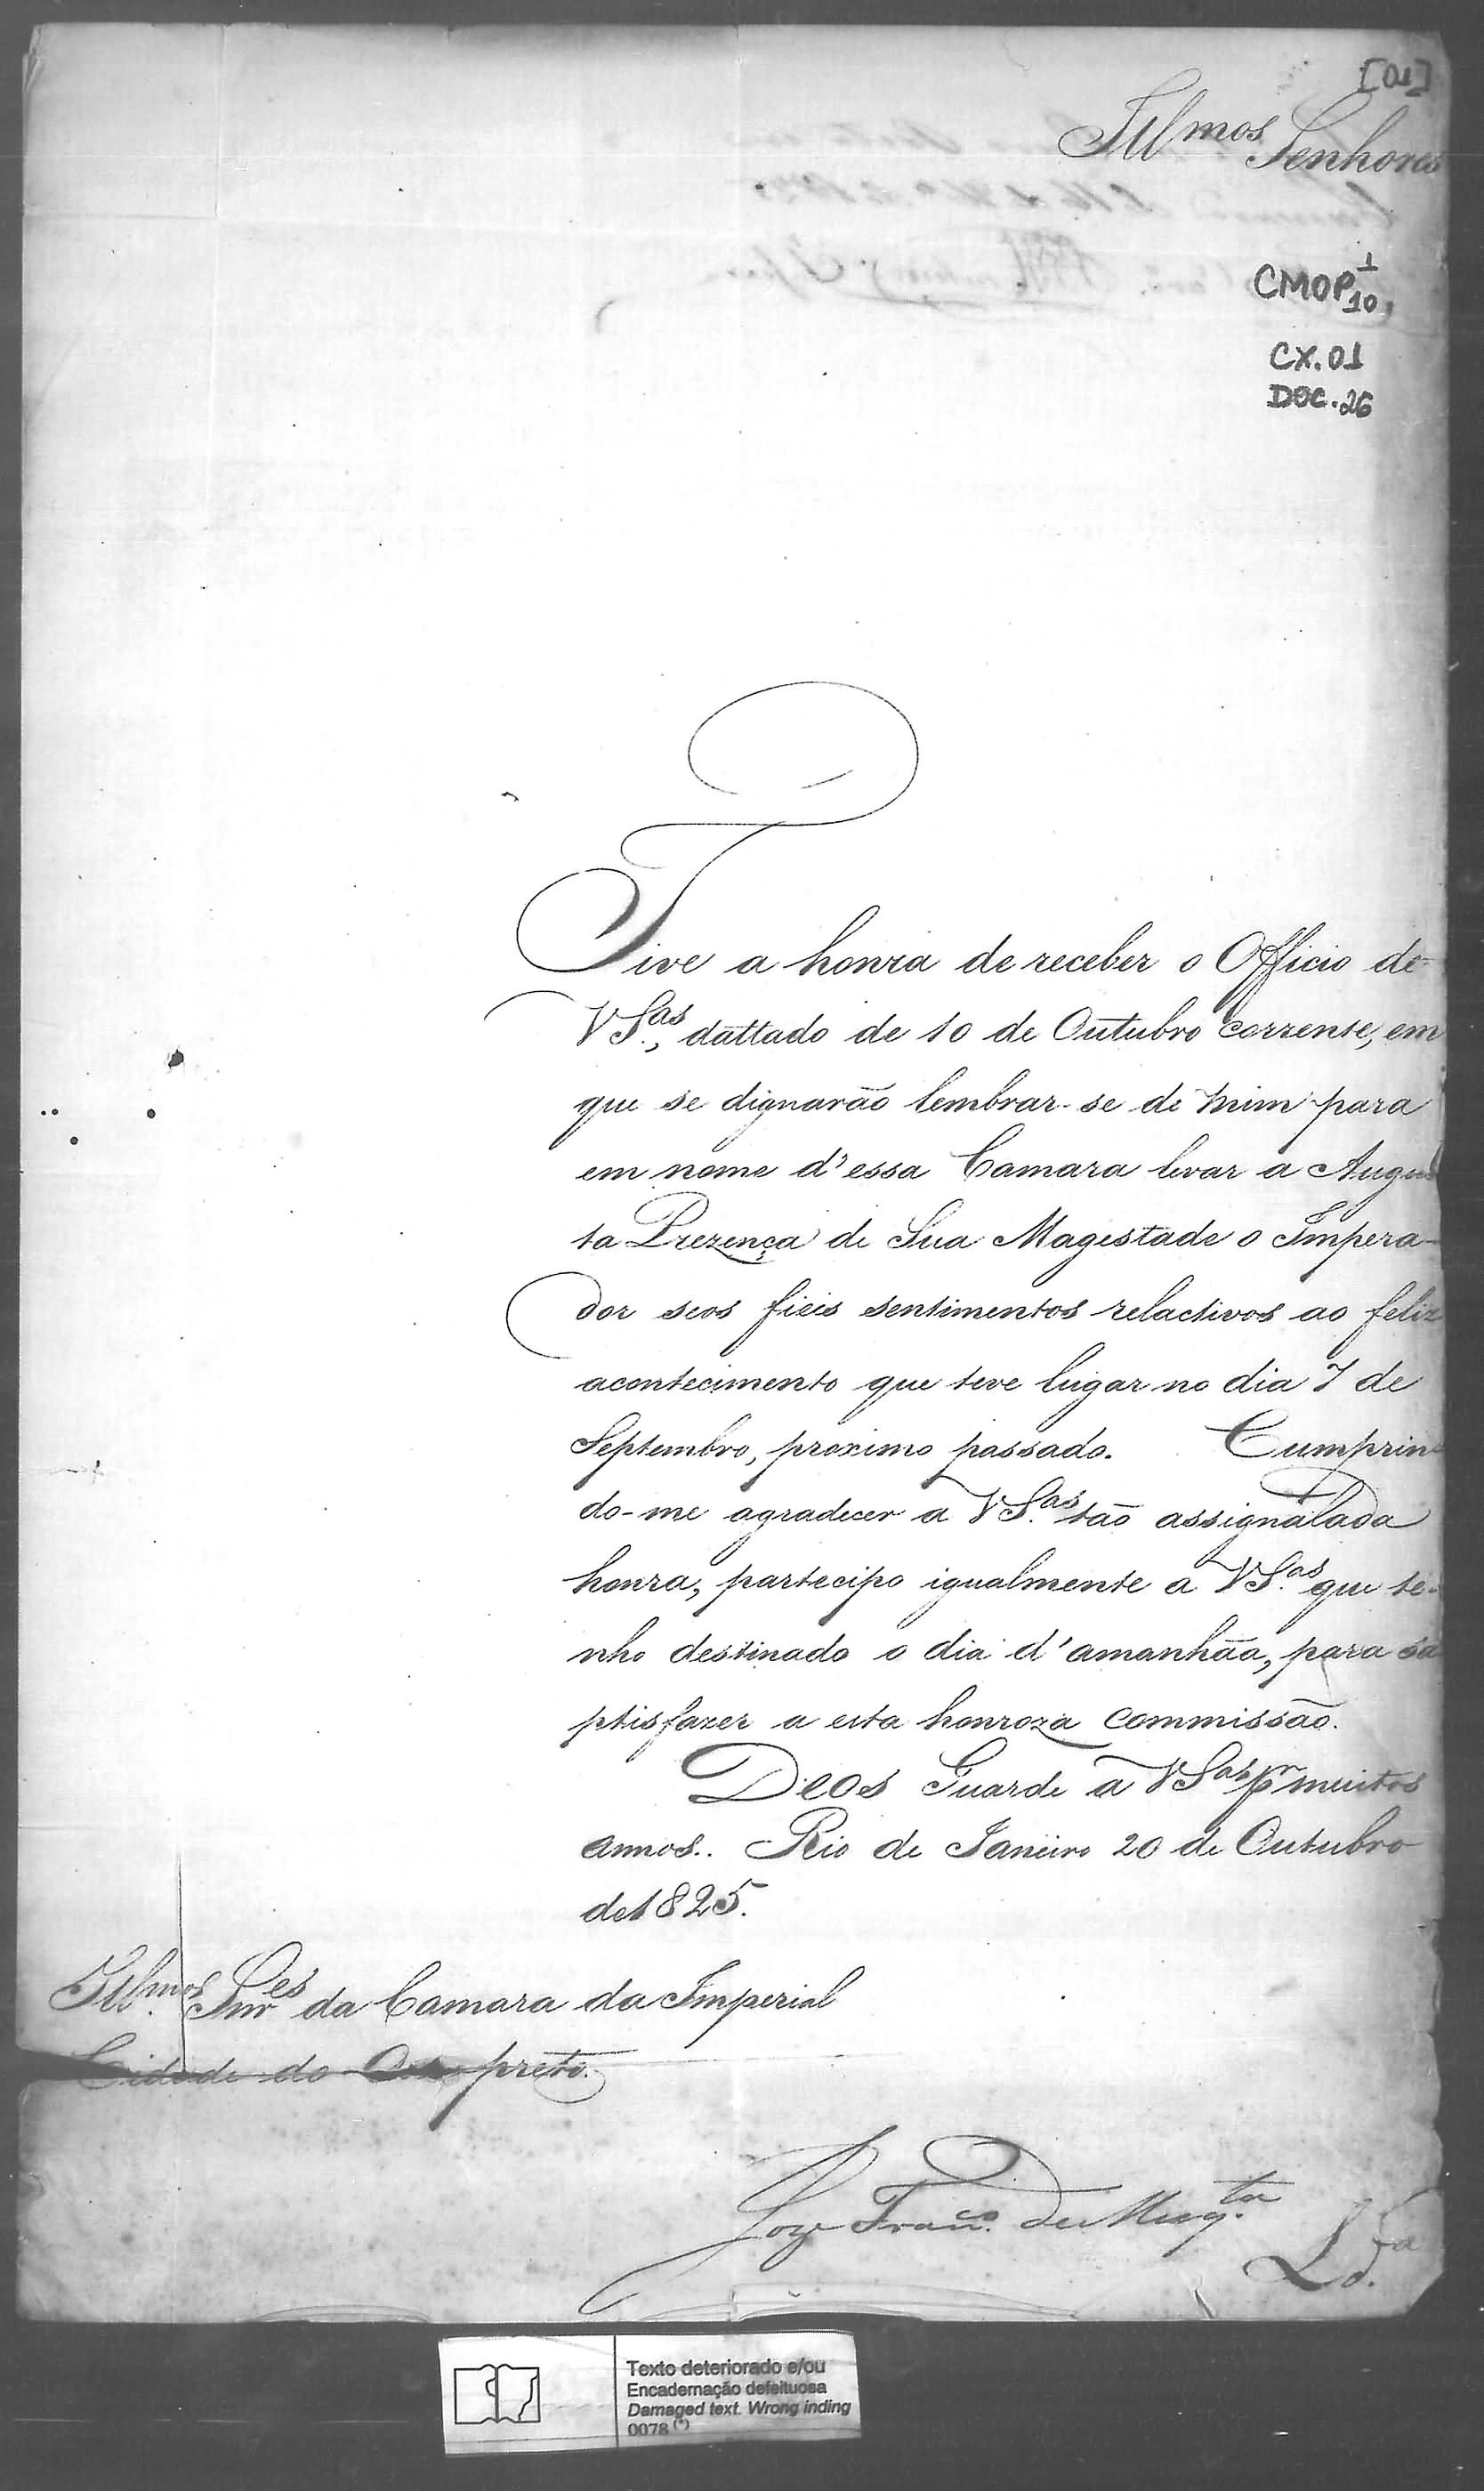 [01]
Illmos Senhores
CMOP 1
10,
CX.01
DOC.26
Tive a honra de receber o Officio de
VS.as, dattado de 10 de Outubro corrente, em
que se dignarão lembrar-se de mim para
em nome d'essa Camara levar a Augus
ta Prezença de Sua Magestade o Impera-
dor seos fieis sentimentos relactivos ao feliz
acontecimento que teve lugar no dia 7 de
Septembro, proximo passado. Cumprin
do-me agradecer a VS.as tão assignalada
honra, partecipo igualmente a VS.as que te-
nho destinado o dia d'amanhãa, para sa
ptisfazer a esta honroza commissão.
Deos Guarde a VSas pr muitos
annos.. Rio de Janeiro 20 de Outubro
de 1825.
Illmos. Snres da Camara da Imperial
Cidade do Ouro preto.
Joze Franco. de Mesq.ta
Texto deteriorado e/ou
Encadernação defeituosa
Damaged text. Wrong inding
0078 (*)